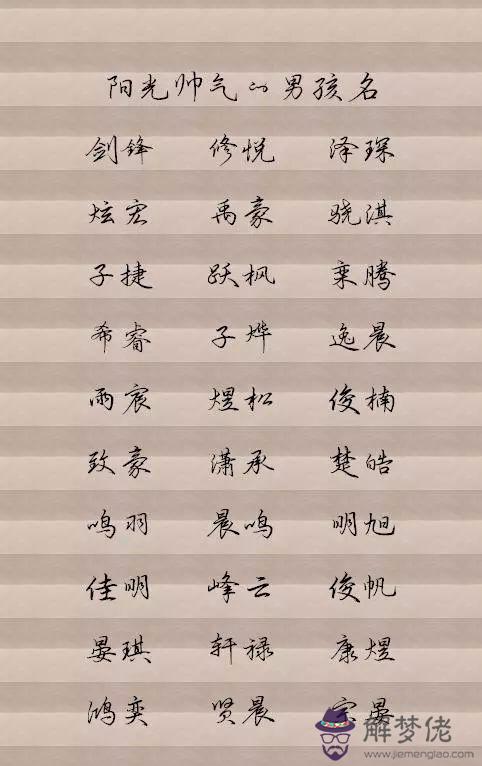 阳光帅气的男孩名
剑锋 修悦 泽琛
炫宏 禹豪 骁淇
子捷 跃枫 栾腾
希睿 子烨 逸晨
雨宸 煜松 俊楠
致豪 潇承 楚皓
鸣羽 晨鸣 明旭
佳明 峰云 俊帆
晏琪 轩禄 康煜
鸿奕 贤晨 宗晏
解梦佬
www.jiemenglao.com